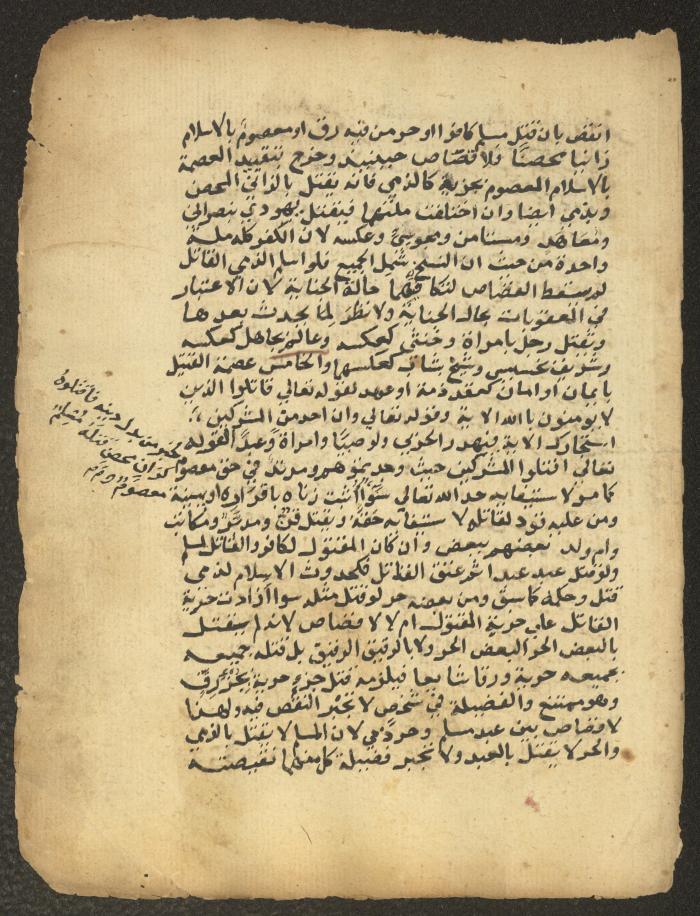 انقص بان قتل مسلم كافرا او حر من فيه رق او معصوم بالاسلام
زانيا محصنا فلا قصاص حينئذ وخرج بتقييد العصمة
بالاسلام المعصوم بجزية كالذمي فانه يقتل بالزاني المحصن
وبذمي ايضا وان اختلفت ملتهما فيقتل يهودي بنصراني
ومعاهد ومستامن ومجوسي وعكسه لان الكفر كله ملة
واحدة من حيث ان النسخ شمل الجميع فلو اسلم الذمي القاتل
لم يسقط القصاص لتكافيهما حالة الجناية لان الاعتبار
في العقوبات بحال الجناية ولا نظر لما يحدث بعدها
ويقتل رجل بامراة وخنثى كعكسه وعالم بجاهل كعكسه
وشريف بخسيس وشيخ بشاب كعكسهما والخامس عصمة القتيل
بايمان او امان كعقد ذمة او عهد لقوله تعالى قاتلوا الذين
لا يومنون بالله الاية وقوله تعالى وان احد من المشركين
استجارك الاية فيهدر الحربي ولو صبيا وامراة وعبدا لقوله
تعالى اقتلوا المشركين حيث وجدتموهم ومرتد في حق معصوم
لخبر من بدل دينه فاقتلوه
كزان محصن قتله مسلم
معصوم
كما مر لاستيفايه حد الله تعالى سوا اثبت زناه باقراره او ببينة
ومن عليه قود لقاتله لاستيفائه حقه ويقتل قن ومدبر ومكاتب
وام ولد بعضهم ببعض وان كان المقتول لكافر والقاتل لمسلم
ولو قتل عبد عبدا ثم عتق القاتل فكحدوث الاسلام لذمي
قتل وحكمه كما سبق ومن بعضه حر لو قتل مثله سوا ازادت حرية
القاتل على حرية المقتول ام لا لا قصاص لانه لم يقتل
بالبعض الحر البعض الحر ولا بالرقيق الرقيق بل قتله جميعه
بجميعه حرية ورقا شايعا فيلزمه قتل جزء حرية بجزء رق
وهو ممتنع والفضيلة في شخص لا تجبر النقص فيه ولهذا
لا قصاص بين عبد مسلم وحر ذمي لان المسلم لا يقتل بالذمي
والحر لا يقتل بالعبد ولا تجبر فضيلة كل منهما نقيصته